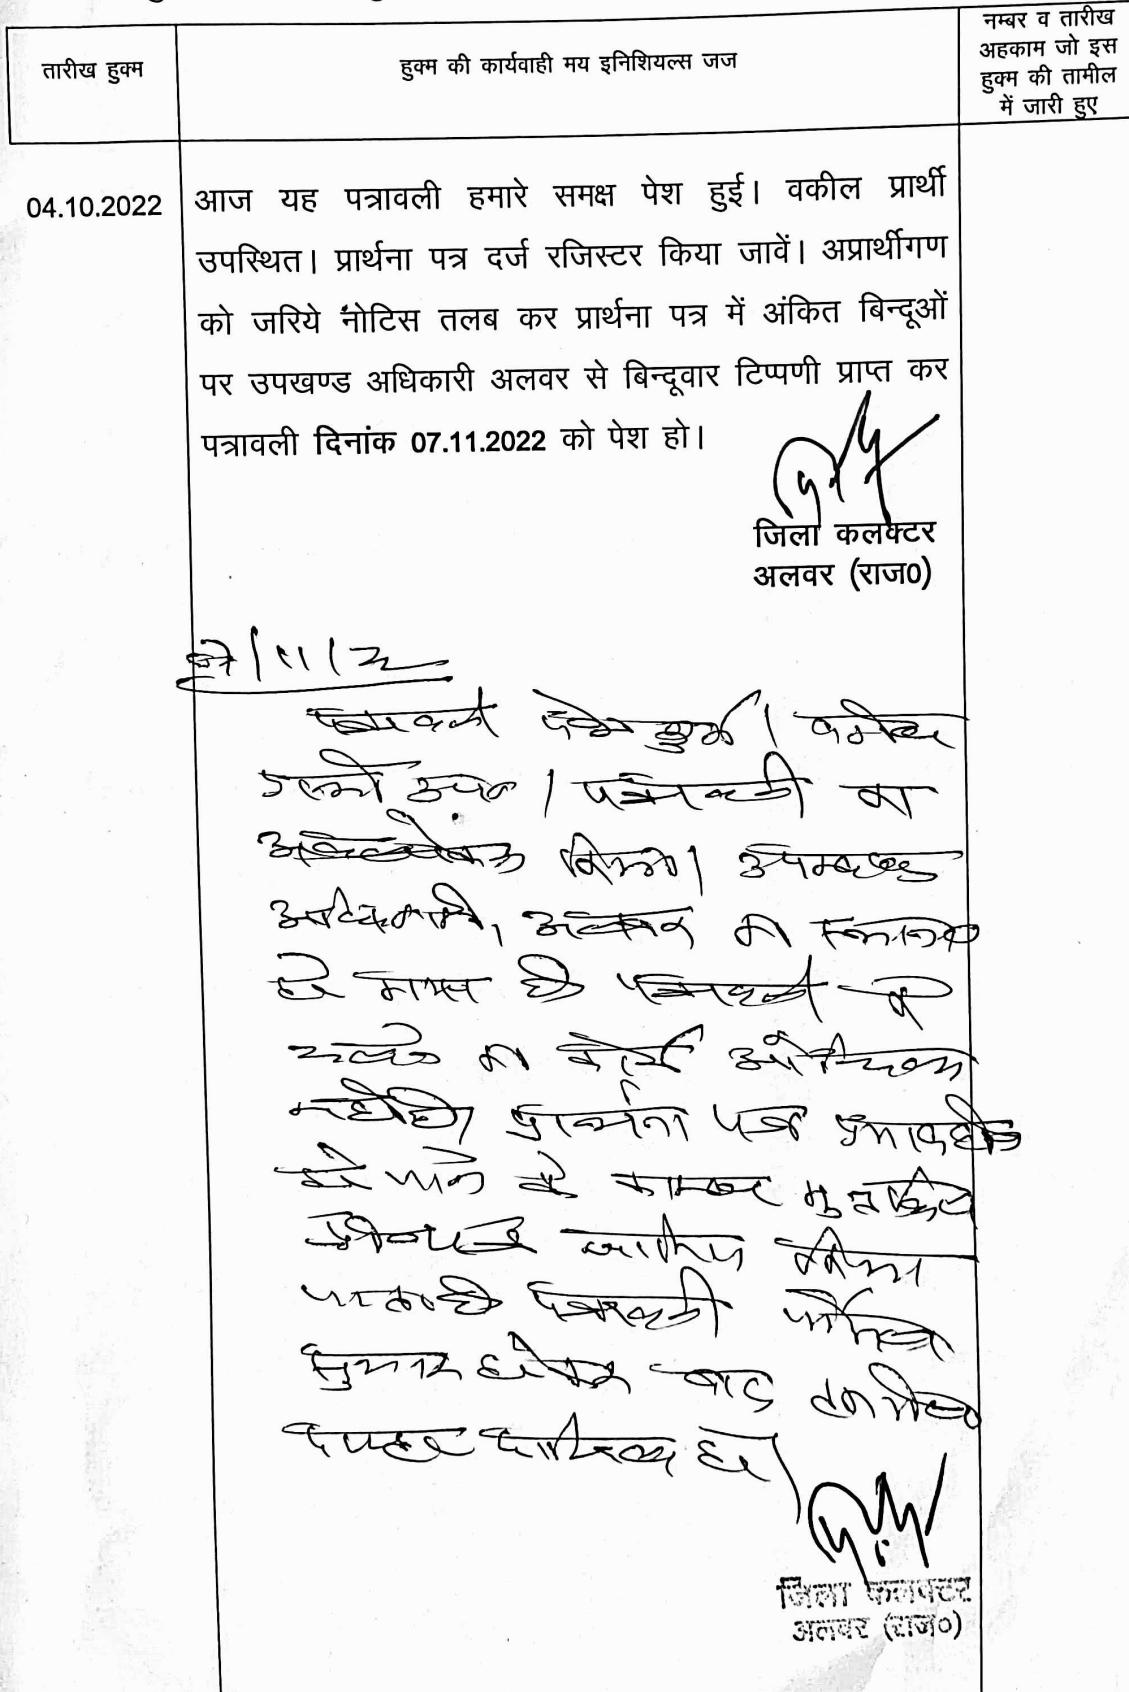 तारीख हुक्म
हुक्म की कार्यवाही मय इनिशियल्स जज
नम्बर व तारीख
अहकाम जो इस
हुक्म की तामील
में जारी हुए
04.10.2022
आज यह पत्रावली हमारे समक्ष पेश हुई। वकील प्रार्थी
उपस्थित। प्रार्थना पत्र दर्ज रजिस्टर किया जावें। अप्रार्थीगण
को जरिये नोटिस तलब कर प्रार्थना पत्र में अंकित बिन्दूओं
पर उपखण्ड अधिकारी अलवर से बिन्दूवार टिप्पणी प्राप्त कर
पत्रावली दिनांक 07.11.2022 को पेश हो।
जिला कलक्टर
अलवर (राज0)
पत्रावली पेश हुई। वकील
उप0। पत्रावली का
अवलोकन किया। उपखण्ड
अधिकारी, अलवर का स्थानान्तरण
हो गया है पत्रावली में
का कोई औचित्य
नहीं है। प्रार्थना पत्र प्रभावहीन
हो जाने के कारण
खारिज किया
जाता है। पत्रावली फैसल
शुमार होकर बाद तकमील
दफ्तर दाखिल हो।
जिला कलक्टर
अलवर (राज०)